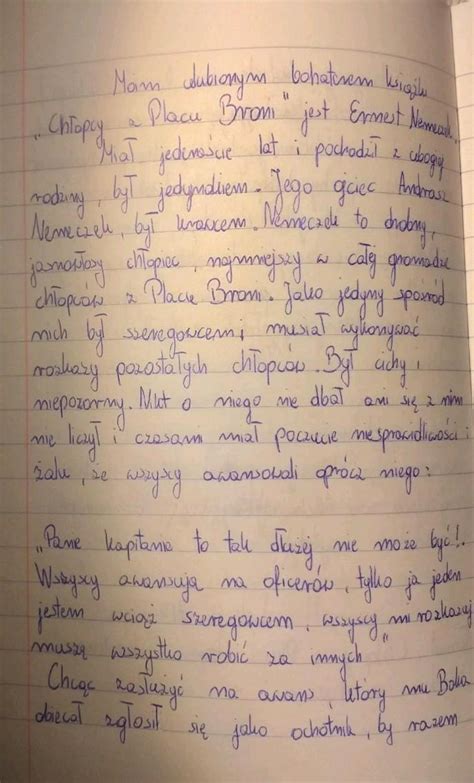 Moim ulubionym bohaterem książki
„Chłopcy z Placu Broni" jest Ernest Nemeczek.
Miał jedenaście lat i pochodził z ubogiej
rodziny, był jedynakiem. Jego ojciec Andrasz
Nemeczek, był krawcem. Nemeczek to drobny,
jasnowłosy chłopiec, najmniejszy w całej gromadzie
chłopców z Placu Broni. Jako jedyny spośród
nich był szeregowcem i musiał wykonywać
rozkazy pozostałych chłopców. Był cichy i
niepozorny. Nikt o niego nie dbał ani się z nim
nie liczył i czasami miał poczucie niesprawidliwości i
żalu, że wszyscy awansowali oprócz niego:
„Panie kapitanie to tak dłużej nie może być!.
Wszyscy awansują na oficerów, tylko ja jeden
jestem wciąż szeregowcem, wszyscy mi rozkazują
muszą wszystko robić za innych"
Chcąc zasłużyć na awans, który mu Boka
obiecał zgłosił się jako ochotnik, by razem